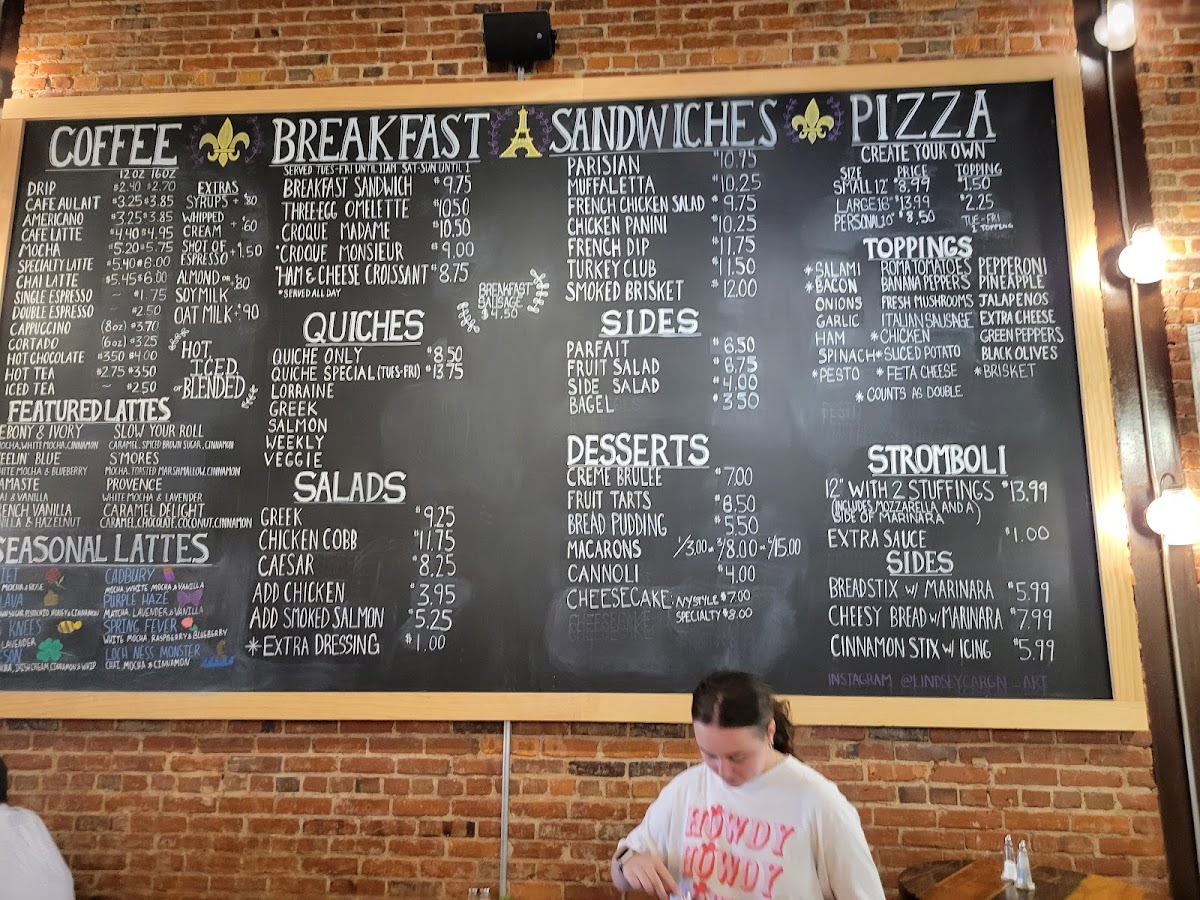 COFFEE
12 OZ 16 OZ
DRIP $2.40 $2.70
CAFE AU LAIT $3.25 $3.85
AMERICANO $3.25 $3.85
CAFE LATTE $4.40 $4.95
MOCHA $5.20 $5.75
SPECIALTY LATTE $5.40 $6.00
CHAI LATTE $5.45 $6.00
SINGLE ESPRESSO ~ $1.75
DOUBLE ESPRESSO ~ $2.50
CAPPUCCINO (8oz) $3.70
CORTADO (6oz) $3.25
HOT CHOCOLATE $3.50 $4.00
HOT TEA $2.75 $3.50
ICED TEA ~ $2.50
EXTRAS
SYRUPS + .80
WHIPPED
CREAM + .60
SHOT OF
ESPRESSO + 1.50
ALMOND OR
SOY MILK + .80
OAT MILK + .90
*HOT,
ICED,
OR BLENDED
FEATURED LATTES
EBONY & IVORY
MOCHA, WHITE MOCHA, CINNAMON
FEELIN' BLUE
WHITE MOCHA & BLUEBERRY
& VANILLA
FRENCH VANILLA
& HAZELNUT
SLOW YOUR ROLL
CARAMEL, SPICED BROWN SUGAR, CINNAMON
S'MORES
MOCHA, TOASTED MARSHMALLOW, CINNAMON
PROVENCE
WHITE MOCHA & LAVENDER
CARAMEL DELIGHT
CARAMEL, CHOCOLATE, COCONUT, CINNAMON
SEASONAL LATTES
MOCHA & ROSE
KNEES
LAVENDER
IRISH CREAM, CINNAMON & WHIP
CADBURY
MOCHA, WHITE MOCHA & VANILLA
PURPLE HAZE
MATCHA, LAVENDER & VANILLA
SPRING FEVER
WHITE MOCHA, RASPBERRY & BLUEBERRY
LOCH NESS MONSTER
CHAI, MOCHA & CINNAMON
BREAKFAST
SERVED TUES-FRI UNTIL 11AM SAT-SUN UNTIL 1
BREAKFAST SANDWICH $9.75
THREE-EGG OMELETTE $10.50
CROQUE MADAME $10.50
*CROQUE MONSIEUR $9.00
*HAM & CHEESE CROISSANT $8.75
*SERVED ALL DAY
BREAKFAST
SAUSAGE
$4.50
QUICHES
QUICHE ONLY $8.50
QUICHE SPECIAL (TUES-FRI) $13.75
LORRAINE
GREEK
SALMON
WEEKLY
VEGGIE
SALADS
GREEK $9.25
CHICKEN COBB $11.75
CAESAR $8.25
ADD CHICKEN $3.95
ADD SMOKED SALMON $5.25
*EXTRA DRESSING $1.00
SANDWICHES
PARISIAN $10.75
MUFFALETTA $10.25
FRENCH CHICKEN SALAD $9.75
CHICKEN PANINI $10.25
FRENCH DIP $11.75
TURKEY CLUB $11.50
SMOKED BRISKET $12.00
SIDES
PARFAIT $6.50
FRUIT SALAD $6.75
SIDE SALAD $4.00
BAGEL $3.50
DESSERTS
CREME BRULEE $7.00
FRUIT TARTS $8.50
BREAD PUDDING $5.50
MACARONS 1/3.00 OR 3/8.00 OR 6/15.00
CANNOLI $4.00
CHEESECAKE: NY STYLE $7.00
SPECIALTY $8.00
PIZZA
CREATE YOUR OWN
SIZE PRICE TOPPING
SMALL 12" $8.99 $1.50
LARGE 16" $13.99 $2.25
PERSONAL 10" $8.50 TUE-FRI
1 TOPPING
TOPPINGS
*SALAMI ROMA TOMATOES PEPPERONI
*BACON BANANA PEPPERS PINEAPPLE
ONIONS FRESH MUSHROOMS JALAPENOS
GARLIC ITALIAN SAUSAGE EXTRA CHEESE
HAM *CHICKEN GREEN PEPPERS
SPINACH *SLICED POTATO BLACK OLIVES
*PESTO *FETA CHEESE *BRISKET
*COUNTS AS DOUBLE
STROMBOLI
12" WITH 2 STUFFINGS $13.99
(INCLUDES MOZZARELLA AND A
SIDE OF MARINARA)
EXTRA SAUCE $1.00
SIDES
BREADSTIX W/ MARINARA $5.99
CHEESY BREAD W/ MARINARA $7.99
CINNAMON STIX W/ ICING $5.99
INSTAGRAM
HOWDY
HOWDY